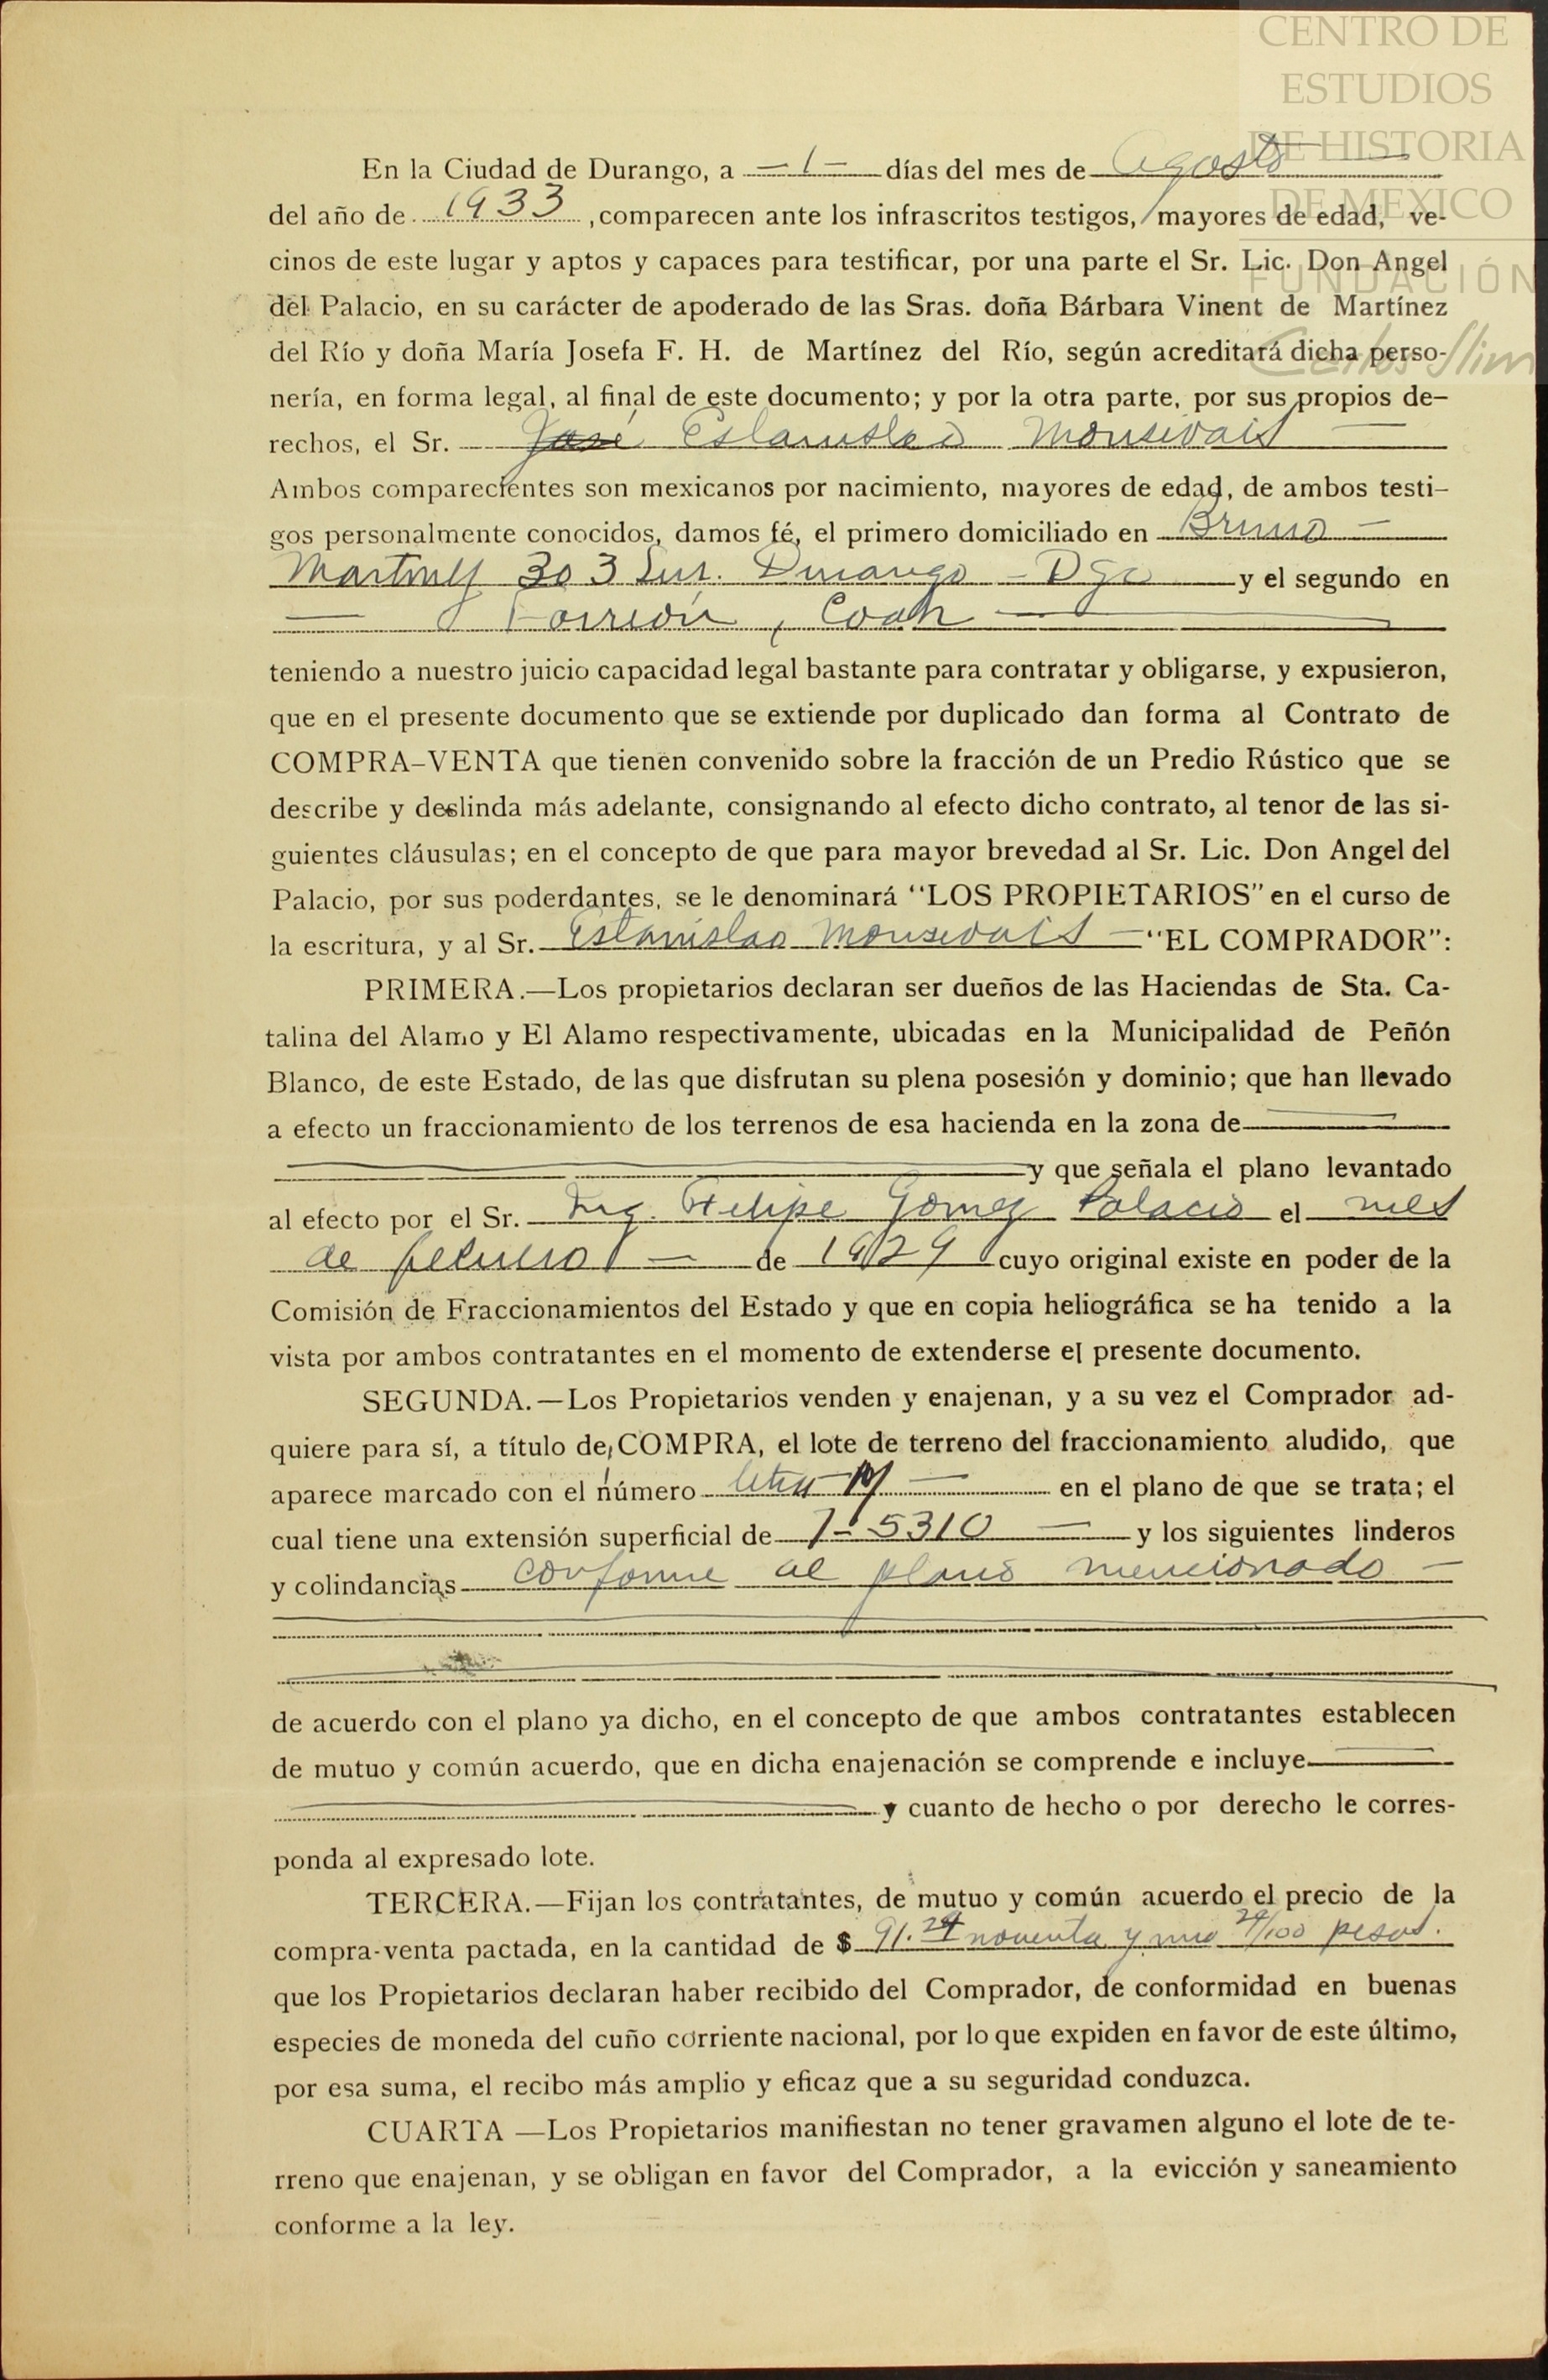 CENTRO DE
ESTUDIOS
DE HISTORIA
DE MEXICO
FUNDACIÓN
Carlos Slim
En la Ciudad de Durango, a — 1 — días del mes de Agosto —
del año de 1933, comparecen ante los infrascritos testigos, mayores de edad, ve-
cinos de este lugar y aptos y capaces para testificar, por una parte el Sr. Lic. Don Angel
del Palacio, en su carácter de apoderado de las Sras. doña Bárbara Vinent de Martínez
del Río y doña María Josefa F. H. de Martínez del Río, según acreditará dicha perso-
nería, en forma legal, al final de este documento; y por la otra parte, por sus propios de-
rechos, el Sr. José Estanislao Monsivais —
Ambos comparecientes son mexicanos por nacimiento, mayores de edad, de ambos testi-
gos personalmente conocidos, damos fé, el primero domiciliado en Bruno —
Martinez 303 Sur. Durango - Dgo y el segundo en
— Torreón, Coah —
teniendo a nuestro juicio capacidad legal bastante para contratar y obligarse, y expusieron,
que en el presente documento que se extiende por duplicado dan forma al Contrato de
COMPRA-VENTA que tienen convenido sobre la fracción de un Predio Rústico que se
describe y deslinda más adelante, consignando al efecto dicho contrato, al tenor de las si-
guientes cláusulas; en el concepto de que para mayor brevedad al Sr. Lic. Don Angel del
Palacio, por sus poderdantes, se le denominará "LOS PROPIETARIOS" en el curso de
la escritura, y al Sr. Estanislao Monsivais — "EL COMPRADOR":
PRIMERA.—Los propietarios declaran ser dueños de las Haciendas de Sta. Ca-
talina del Alamo y El Alamo respectivamente, ubicadas en la Municipalidad de Peñón
Blanco, de este Estado, de las que disfrutan su plena posesión y dominio; que han llevado
a efecto un fraccionamiento de los terrenos de esa hacienda en la zona de
y que señala el plano levantado
al efecto por el Sr. Ing. Felipe Gomez Palacio el mes
de febrero — de 1929 cuyo original existe en poder de la
Comisión de Fraccionamientos del Estado y que en copia heliográfica se ha tenido a la
vista por ambos contratantes en el momento de extenderse el presente documento.
SEGUNDA.—Los Propietarios venden y enajenan, y a su vez el Comprador ad-
quiere para sí, a título de COMPRA, el lote de terreno del fraccionamiento aludido, que
aparece marcado con el número letra M — en el plano de que se trata; el
cual tiene una extensión superficial de 7-5310 — y los siguientes linderos
y colindancias conforme al plano mencionado —
de acuerdo con el plano ya dicho, en el concepto de que ambos contratantes establecen
de mutuo y común acuerdo, que en dicha enajenación se comprende e incluye
y cuanto de hecho o por derecho le corres-
ponda al expresado lote.
TERCERA.—Fijan los contratantes, de mutuo y común acuerdo el precio de la
compra-venta pactada, en la cantidad de $ 91.24 noventa y uno 24/100 pesos.
que los Propietarios declaran haber recibido del Comprador, de conformidad en buenas
especies de moneda del cuño corriente nacional, por lo que expiden en favor de este último,
por esa suma, el recibo más amplio y eficaz que a su seguridad conduzca.
CUARTA —Los Propietarios manifiestan no tener gravamen alguno el lote de te-
rreno que enajenan, y se obligan en favor del Comprador, a la evicción y saneamiento
conforme a la ley.